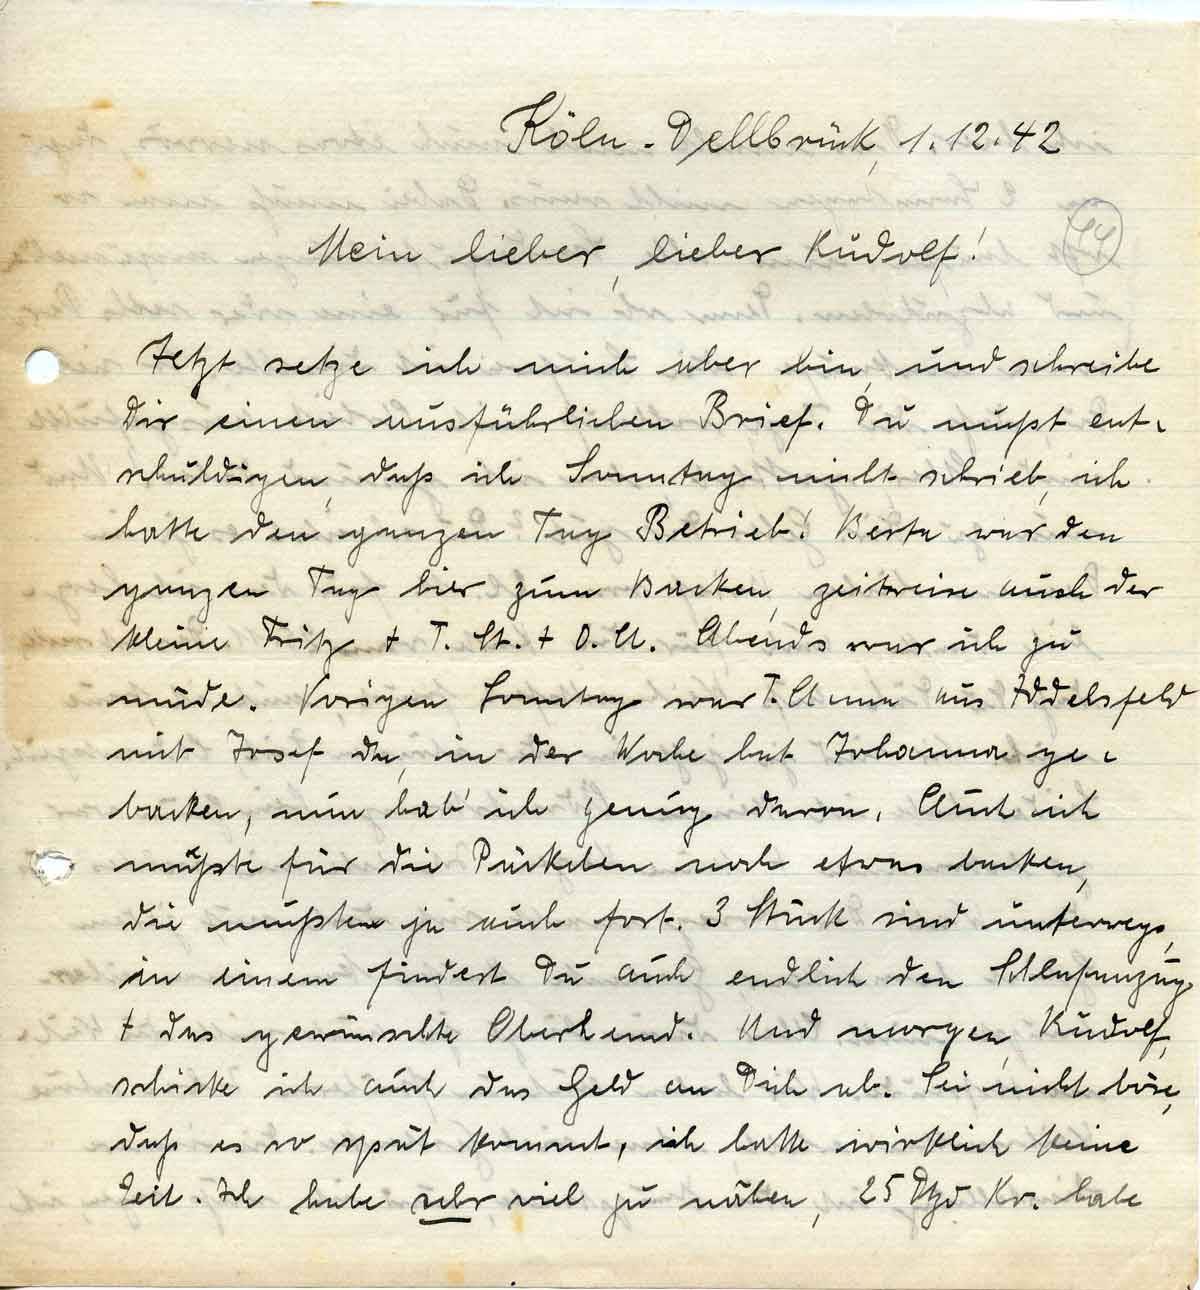 Köln-Dellbrück, 1.12.42
44
Mein lieber, lieber Rudolf!
Jetzt setze ich mich aber hin, und schreibe
Dir einen ausführlichen Brief. Du mußt ent-
schuldigen, daß ich Sonntag nicht schrieb, ich
hatte den ganzen Tag Betrieb! Berta war den
ganzen Tag hier zum Backen, zeitweise auch der
kleine Fritz + T. St. + O. A. Abends war ich zu
müde. Vorigen Sonntag war T. Anna aus Iddelsfeld
mit Josef da, in der Woche hat Johanna ge-
backen, nun hab' ich genug davon. Auch ich
mußte für die Päckchen noch etwas backen,
die mußten ja auch fort. 3 Stück sind unterwegs,
in einem findest Du auch endlich den Schlafanzug
+ das gewünschte Oberhemd. Und morgen, Rudolf,
schicke ich auch das Geld an Dich ab. Sei nicht böse,
daß es so spät kommt, ich hatte wirklich keine
Zeit. Ich habe sehr viel zu nähen, 25 Dtzd Kr. habe